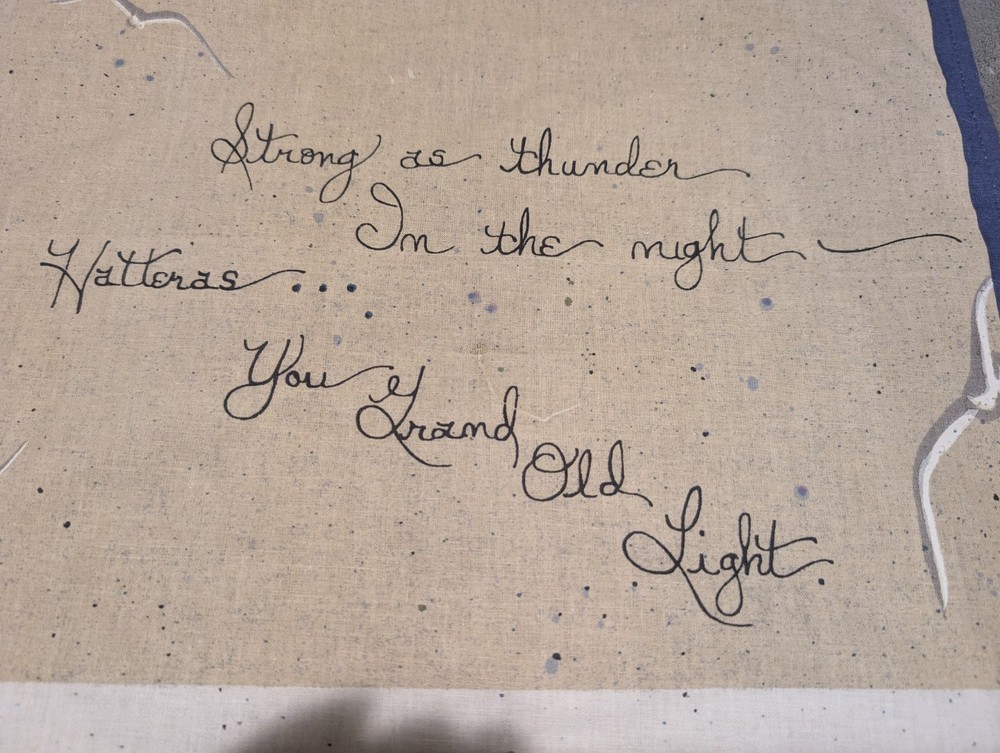 Strong as thunder
In the night —
Hatteras...
You Grand
Old
Light.